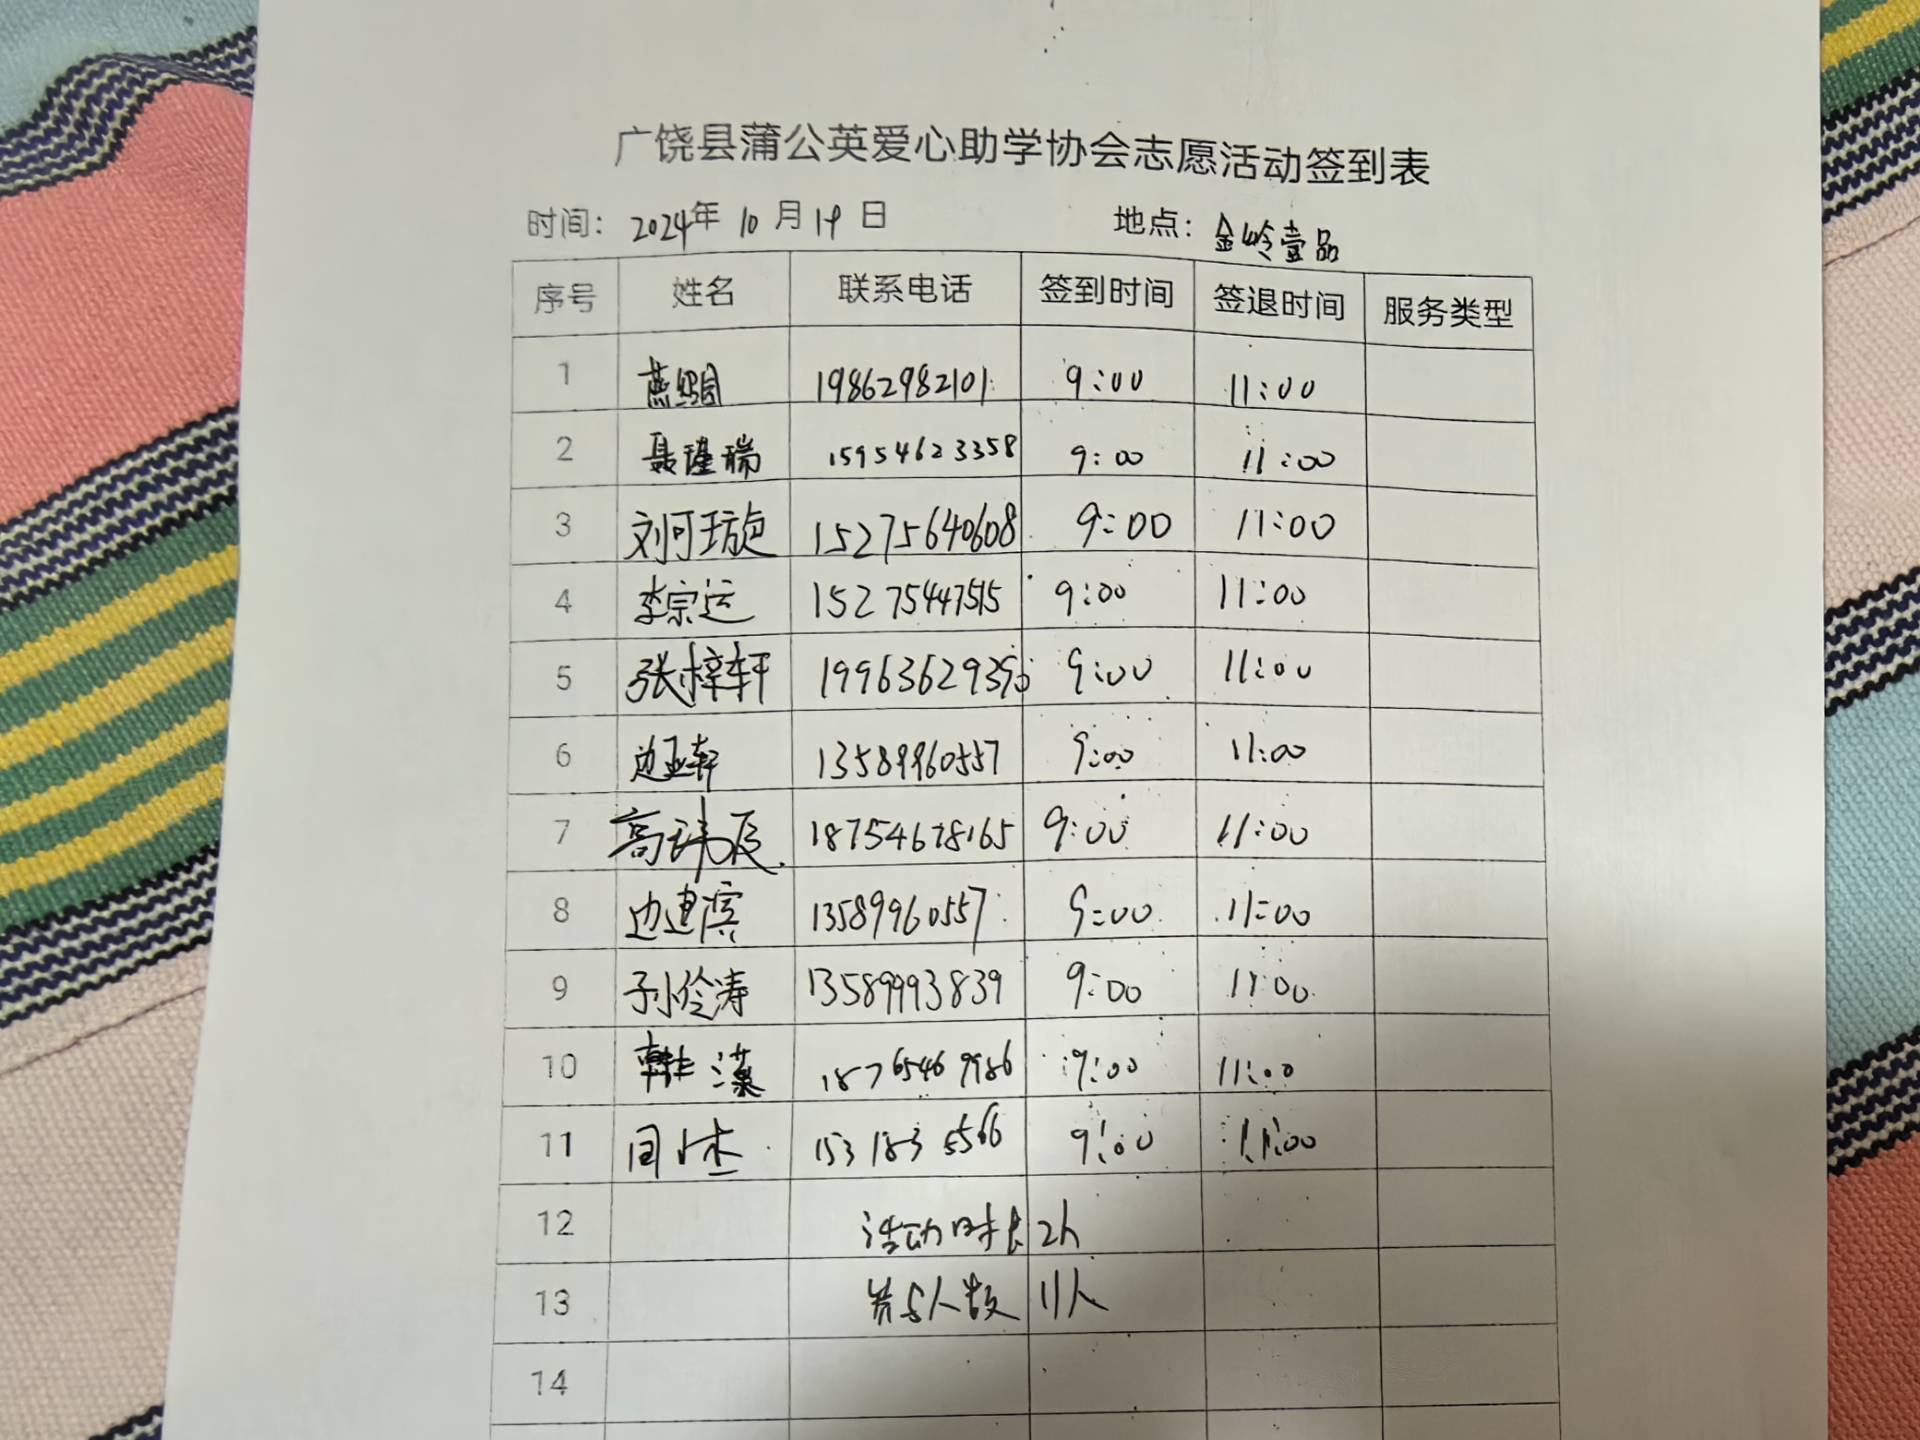 广饶县蒲公英爱心助学协会志愿活动签到表
时间: 2024年 10月19日 地点: 金岭壹品
序号 姓名 联系电话 签到时间 签退时间 服务类型
1 19862982101 9:00 11:00
2 聂瑾瑞 15954623358 9:00 11:00
3 刘可璇 15275640608 9:00 11:00
4 李宗运 15275447515 9:00 11:00
5 张梓轩 9:00 11:00
6 边亚轩 13589960557 9:00 11:00
7 高玮辰 18754678165 9:00 11:00
8 边建滨 13589960557 9:00 11:00
9 孙伶涛 13589993839 9:00 11:00
10 韩 18765469986 9:00 11:00
11 153 183 5566 9:00 11:00
12 活动时长 2h
13 参与人数 11人
14